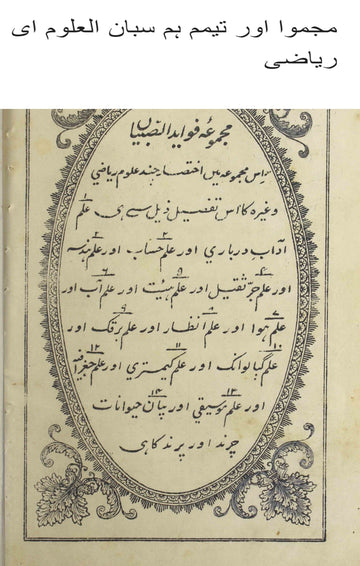 مجموا اور تیمم ہم سبان العلوم ای
ریاضی
مجموعۂ فواید الصبیان
اس مجموعہ میں اختصار چند علوم ریاضی
وغیرہ کا اس تفصیل ذیل سے ہی ۱ علم
آداب درباری اور ۲ علم حساب اور ۳ علم ہندسہ
اور ۴ علم جر ثقیل اور ۵ علم ہیئت اور ۶ علم آب اور
۷ علم ہوا اور ۸ علم انظار اور ۹ علم برقک اور
۱۰ علم گیالوانک اور ۱۱ علم کیمستری اور ۱۲ علم جغرافیہ
اور ۱۳ علم موسیقی اور ۱۴ بیان حیوانات
چرند اور پرند کا ہی